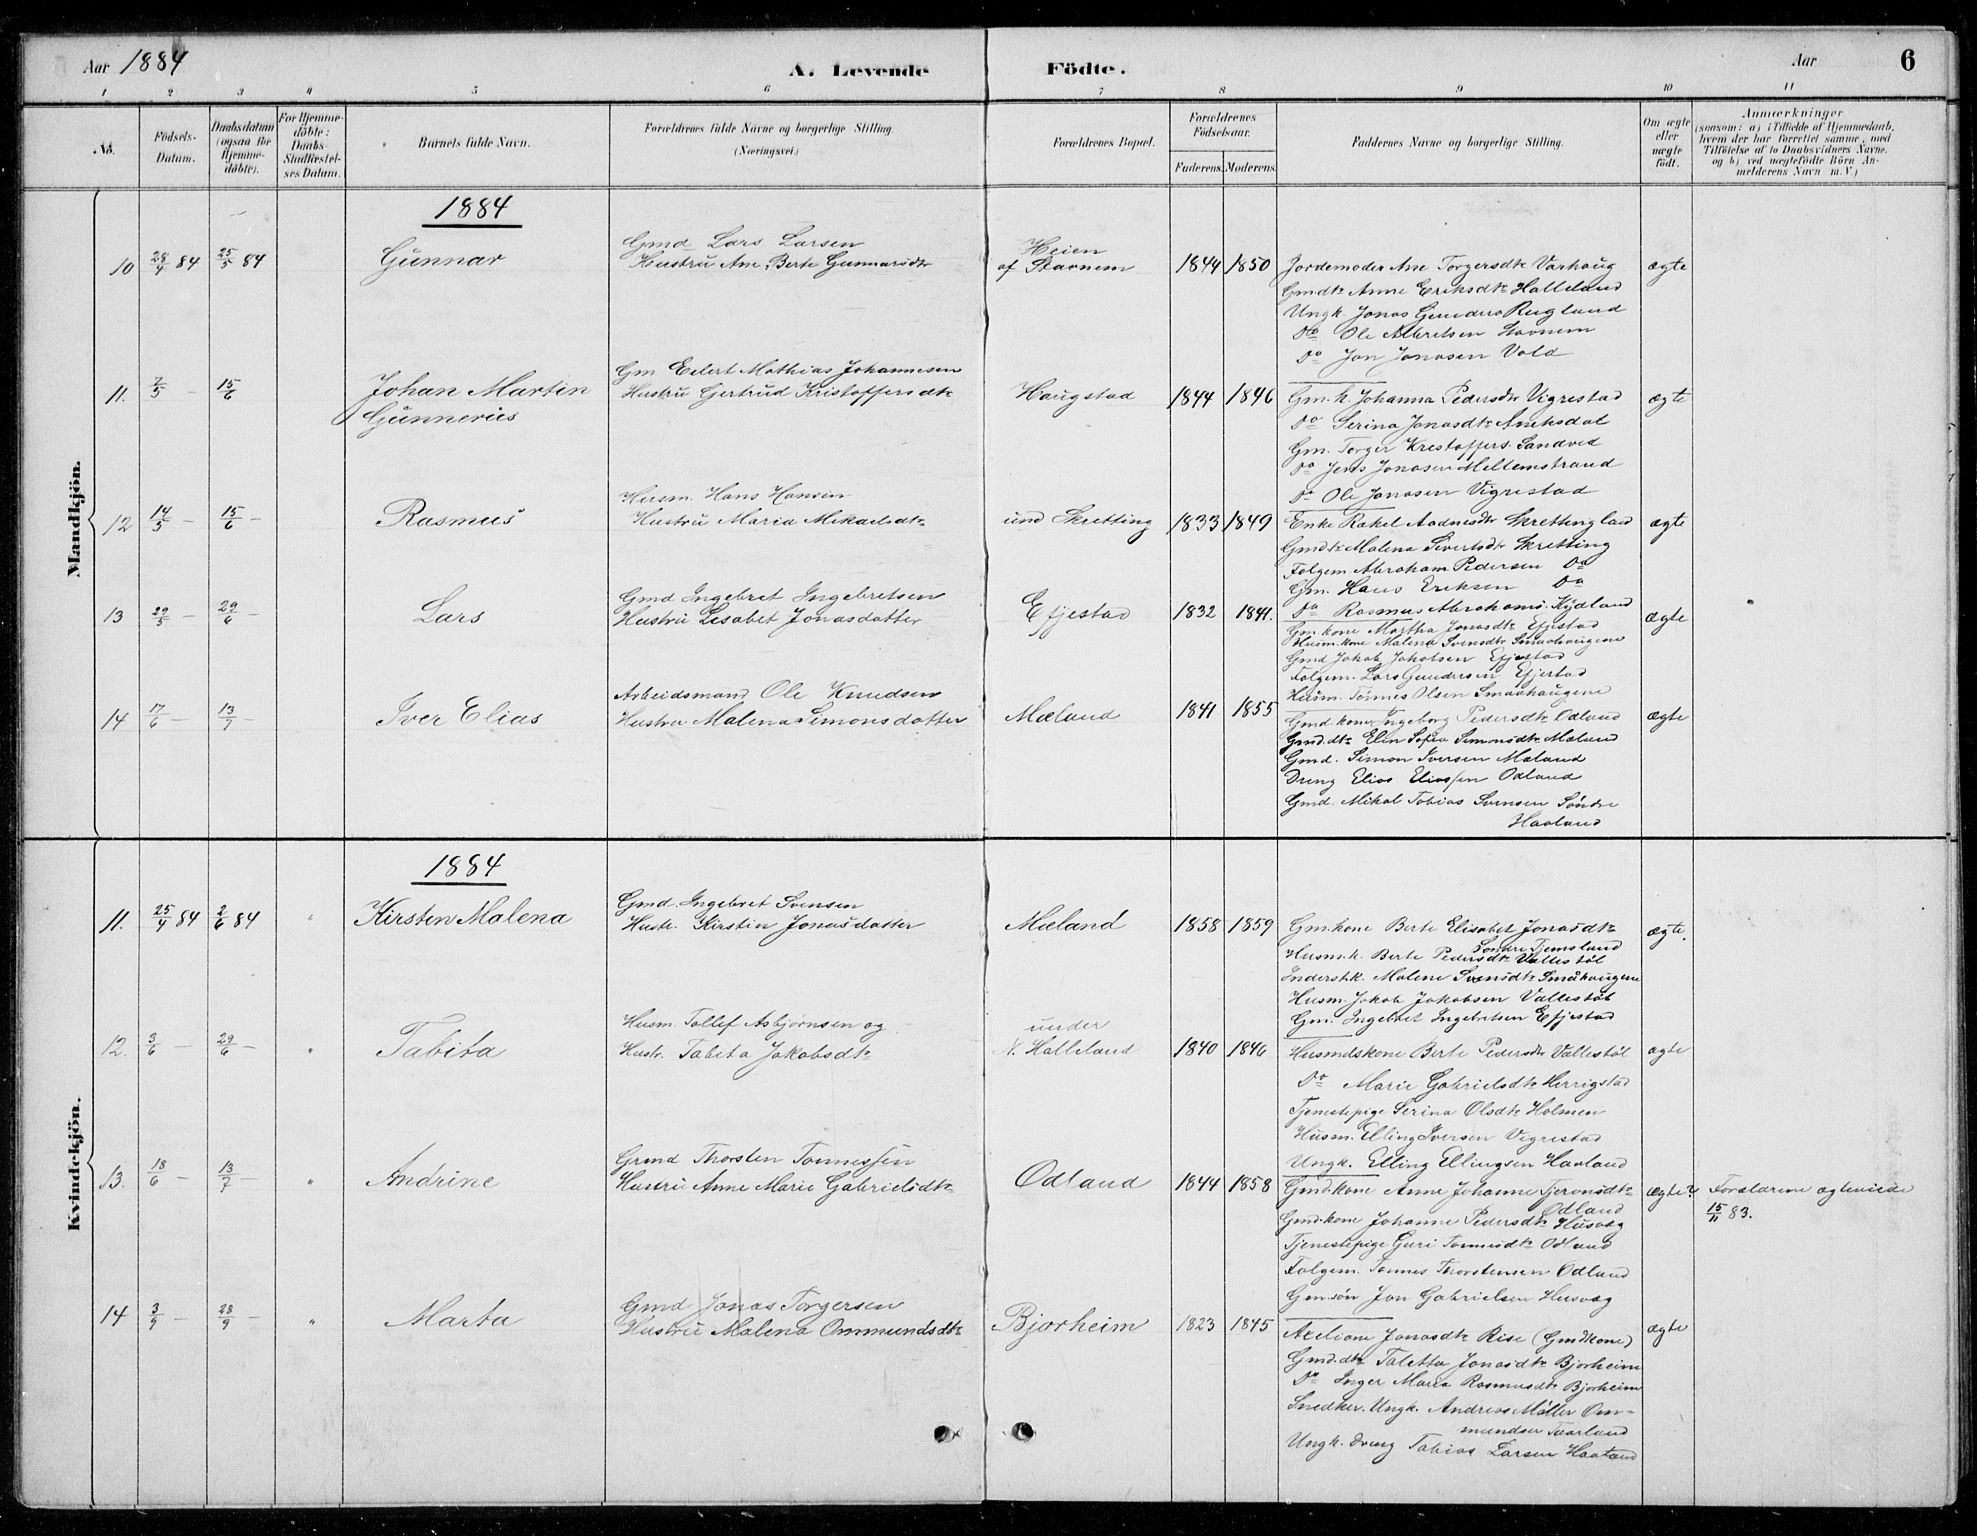 Aar 1884
A. Levende
Födte.
Aar
6
1
2
3
4
5
6
7
8
9
10
11
No.
Födsels-
Datum.
Daabsdatum
(ogsaa for
Hjemme-
döbte).
For Hjemme-
döbte:
Daabs-
Stadfæstel-
ses Datum.
Barnets fulde Navn.
Forældrenes fulde Navne og borgerlige Stilling.
(Næringsvei.)
Forældrenes Bopæl.
Forældrenes
Födselsaar.
Faderens.
Moderens.
Faddernes Navne og borgerlige Stilling.
Om ægte
eller
uægte
født.
Anmærkninger
(saasom: a) i Tilfælde af Hjemmedaab,
hvem der har forrettet samme, med
Tilföielse af to Daabsvidners Navne.
og b) ved uægtefödte Börn An-
melderens Navn m. V.)
Mandkjön.
1884
10
28/4 84
25/5 84
Gunnar
Gmd Lars Larsen
Hustru Ane Berte Gunnarsdtr
Heien
af Stavnem
1844
1850
Jordemoder Ane Torgersdtr Varhaug
Gmdtr Anne Eriksdtr Halleland
Ungk. Jonas Gunders Rugland
Do Ole Albretsen Stavnem
Do Jon Jonasen Vold
ægte
11.
7/5 -
15/6
Johan Martin
Gunnerius
Gm Eilert Mathias Johannesen
Hustru Gertrud Kristoffersdtr
Haugstad
1844
1846
Gm.k. Johanna Pedersdtr Vigrestad
Do Serina Jonasdtr
Gm. Torger Kristoffers. Sandved
Do Jens Jonasen Mellemstrand
Do Ole Jonasen Vigrestad
ægte
12
14/5 -
15/6 -
Rasmus
Husm. Hans Hansen
Hustru Maria Mikaelsdtr
und Skretting
1833
1849
Enke Rakel Aadnesdtr Skrettingland
Gmdtr Malena Sivertsdtr Skretting
Folgem Abraham Pedersen Do
Gm. Hans Eriksen Do
Do Rasmus Abrahams. Kydland
ægte
13
29/5 -
29/6 -
Lars
Gmd Ingebret Ingebretsen
Hustru Lisabet Jonasdatter
Efjestad
1832
1841.
Gm.kone Martha Jonasdtr Efjestad
Husm.kone Malena Svensdtr Smaahaugene
Gmd Jakob Jakobsen Efjestad
Folgem. Lars Gundersen Efjestad
Husm. Tönnes Olsen Smaahaugene
ægte
14
17/6 -
13/7
Iver Elias
Arbeidsmand Ole Knudsen
Hustru Malena Simonsdatter
Mæland
1841
1855
Gmd.kone Ingeborg Pedersdtr Odland
Gmd.dtr Elin Sofia Simonsdtr Mæland
Gmd. Simon Iversen Mæland
Dreng Elias Eliassen Odland
Gmd. Mikal Tobias Svensen Söndre
Haaland
ægte
Kvindekjön.
1884
11.
25/4 84
2/6 84
"
Kirsten Malena
Gmd. Ingebret Svensen
Hustr. Kirstin Jonasdatter
Mæland
1858
1859
Gm.kone Berte Elisabet Jonasdtr
Söndre Tjemsland
Husm.k. Berte Pedersdtr Vallestöl
Inderstk. Malene Svensdtr Småhaugene
Husm. Jakob Jakobsen Vallestöl
Gm. Ingebret Ingebretsen Efjestad
ægte.
12.
3/6 -
29/6 -
"
Tabita
Husm. Tollef Asbjørnsen og
Hustr. Tabita Jakobsdtr
under
N. Halleland
1840
1846
Husmdskone Berte Pedersdtr Vallestöl
Do Marie Gabrielsdtr Herrigstad
Tjenestepige Serina Olsdtr Holmen
Husm. Elling Iversen Vigrestad
Ungk. Elling Ellingsen Haaland
ægte
13.
18/6 -
13/7 -
"
Andrine
Grmd Thorsten Tonnessen
Hustru Anne Marie Gabrielsdtr
Odland
1844
1858
Gmd.kone Anne Johanne Tjeransdtr
Odland
Gmd.kone Johanne Pedersdtr Husvæg
Tjenestepige Guri Tonnesdtr Odland
Folgem. Tonnes Thorstensen Odland
Gm.sön Jon Gabrielsen Husvæg
ægte?
Forældrene ægteviede
15/11 83.
14
3/9 -
28/9 -
"
Marta
Gmd Jonas Torgersen
Hustru Malena Ommundsdtr
Bjorheim
1823
1845
Axeliane Jonasdtr Rise (Gmdkone)
Gmd.dtr Taletta Jonasdtr Bjorheim
Do Inger Maria Rasmusdtr Bjorheim
Snedker. Ungk. Andreas Möller Om-
mundsen Taarland
Ungk. dreng Tobias Larsen Haaland
ægte